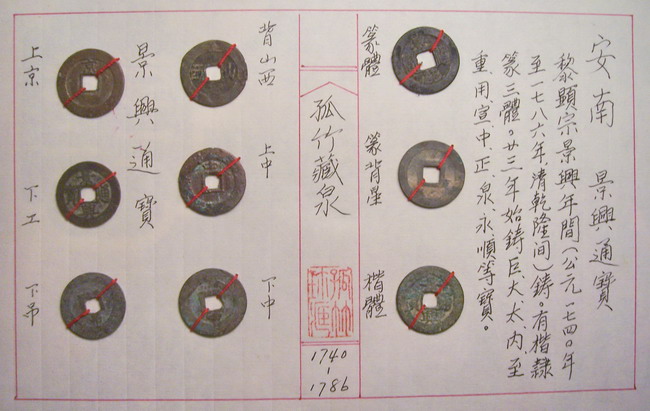 安南 景興通寶
黎顯宗景興年間(公元一七四〇年
至一七八六年,清乾隆间)鑄。有楷隸
篆三體。廿三年始鑄巨、大、太、内、至
重、用、宣、中、正、泉、永、順等寶。
篆體
篆背星
楷體
孤竹藏泉
1740
-
1786
背山西
上中
下中
景興通寶
上京
下工
下吊